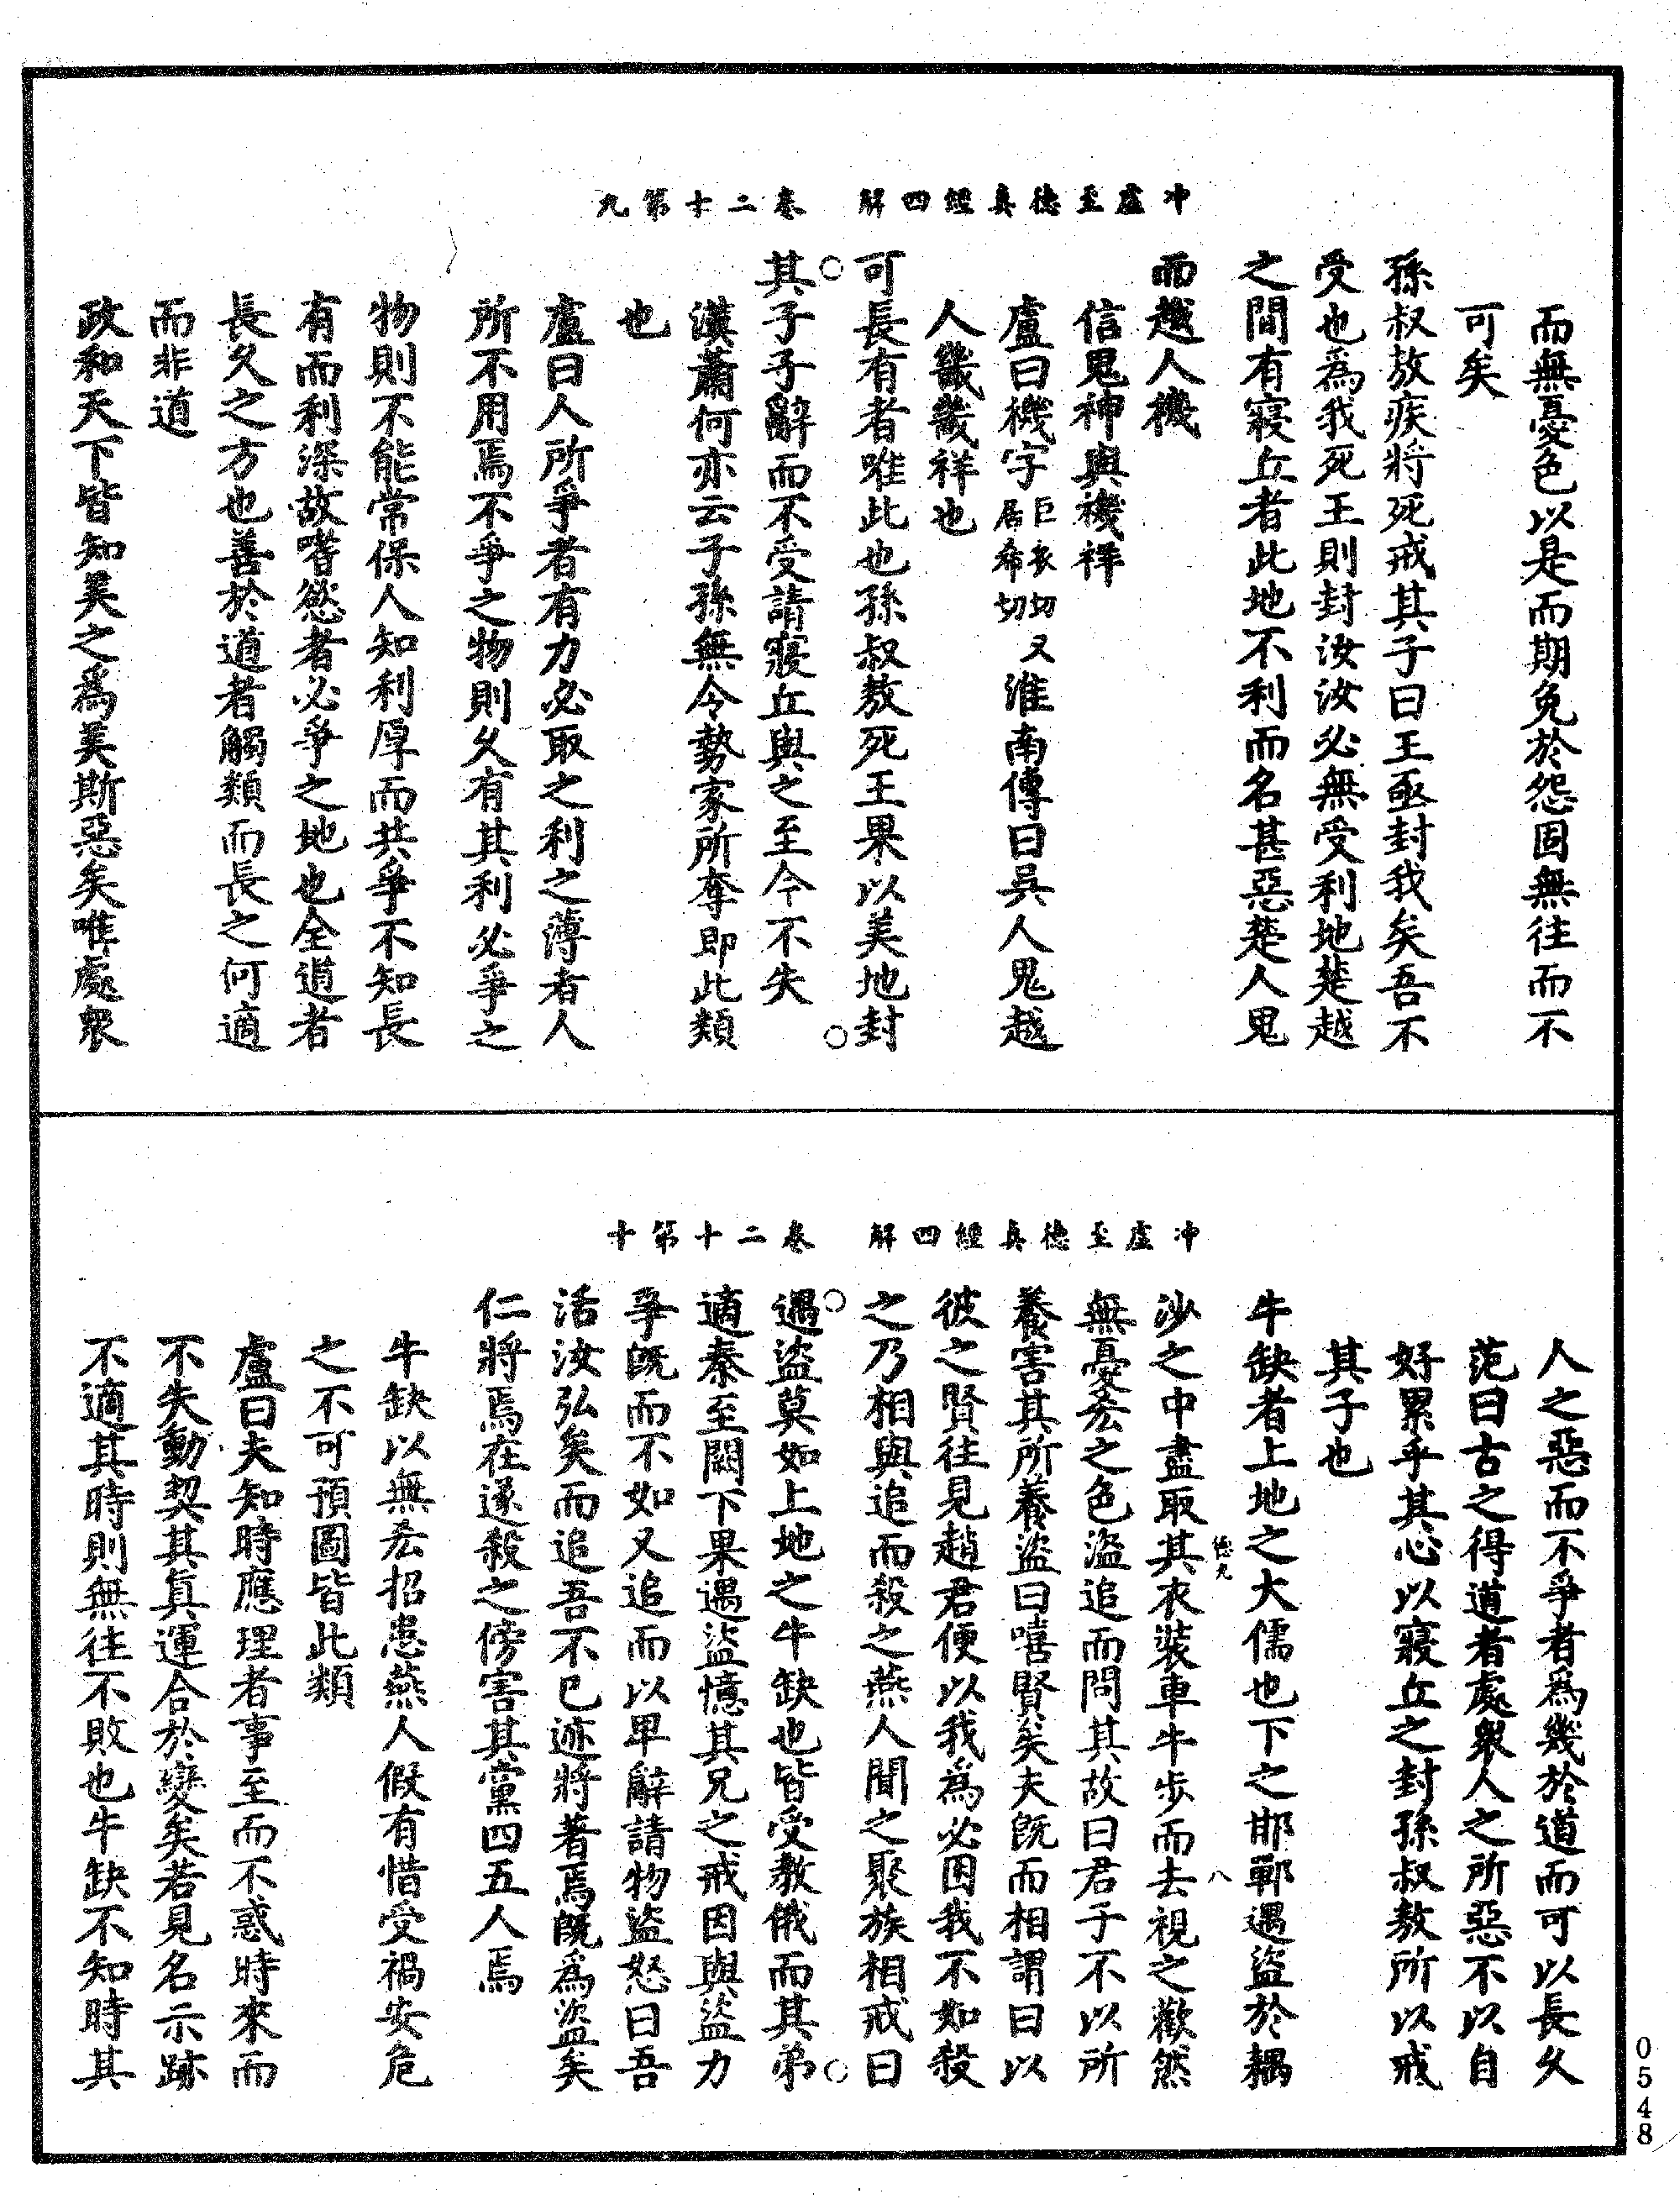 冲虛至德真經四解　卷二十第九
而無憂色以是而期免於怨固無往而不
可矣
孫叔敖疾將死戒其子曰王亟封我矣吾不
受也為我死王則封汝汝必無受利地楚越
之間有寢丘者此地不利而名甚惡楚人鬼
而越人禨
信鬼神與禨祥
盧曰禨字巨衣切又居希切淮南傳曰吳人鬼越
人禨禨祥也
可長有者唯此也孫叔敖死王果以美地封
其子子辭而不受請寢丘與之至今不失
漢蕭何亦云子孫無令勢家所奪即此類
也
盧曰人所爭者有力必取之利之薄者人
所不用焉不爭之物則久有其利必爭之
物則不能常保人知利厚而共爭不知長
有而利深故嗜慾者必爭之地也全道者
長久之方也善於道者觸類而長之何適
而非道
政和天下皆知美之為美斯惡矣唯處衆
冲虛至德真經四解　卷二十第十
人之惡而不爭者為幾於道而可以長久
范曰古之得道者處衆人之所惡不以自
好累乎其心以寢丘之封孫叔敖所以戒
其子也
牛缺者上地之大儒也下之邯鄲遇盜於耦
沙之中盡取其衣裝車牛步而去視之歡然
無憂吝之色盜追而問其故曰君子不以所
養害其所養盜曰嘻賢矣夫既而相謂曰以
彼之賢往見趙君便以我為必困我不如殺
之乃相與追而殺之燕人聞之聚族相戒曰
遇盜莫如上地之牛缺也皆受教俄而其弟
適秦至關下果遇盜憶其兄之戒因與盜力
爭既而不如又追而以卑辭請物盜怒曰吾
活汝弘矣而追吾不已迹將著焉既為盜矣
仁將焉在遂殺之傍害其黨四五人焉
牛缺以無吝招患燕人假有惜受禍安危
之不可預圖皆此類
盧曰夫知時應理者事至而不惑時來而
不失動契其真運合於變矣若見名示跡
不適其時則無往不敗也牛缺不知時其
德九
八
0548